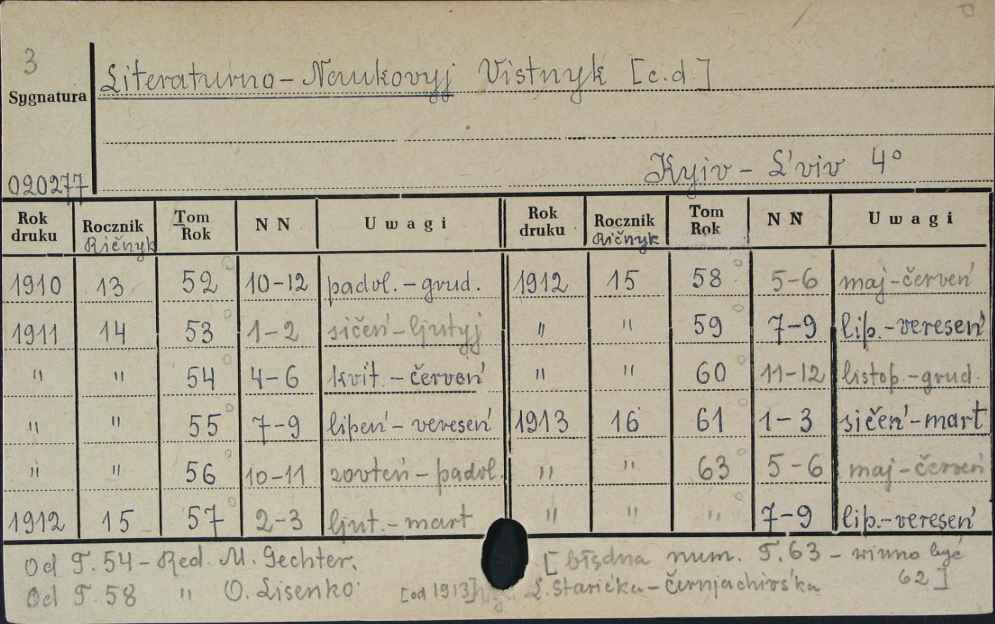 3
Literaturno-Naukovyj Vistnyk [c.d]
Sygnatura
020277
Kyiv - L'viv 4°
Rok druku Rocznik Ričnyk Tom Rok NN Uwagi Rok druku Rocznik Ričnyk Tom Rok NN Uwagi
1910 13 52 10-12 padol.-grud. 1912 15 58 5-6 maj-červeń
1911 14 53 1-2 sičeń-ljutyj " " 59 7-9 lip.-vereseń
" " 54 4-6 kvit.-červeń " " 60 11-12 listop.-grud.
" " 55 7-9 lipeń-vereseń 1913 16 61 1-3 sičeń-mart
" " 56 10-11 zovteń-padol. " " 63 5-6 maj-červeń
1912 15 57 2-3 ljut.-mart " " " 7-9 lip.-vereseń
Od T. 54 - Red. M. Gechter. [błędna num. T. 63 - winno być 62]
Od T. 58 " O. Lisenko [od 1913] L. Starićka-Černjachivśka